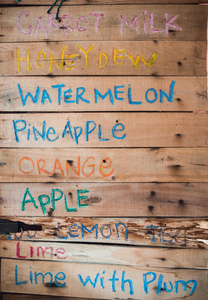 CARROT MILK
HONEYDEW
WATERMELON
PINEAPPLE
ORANGE
APPLE
LEMON TEA
LIME
LIME with PLUM